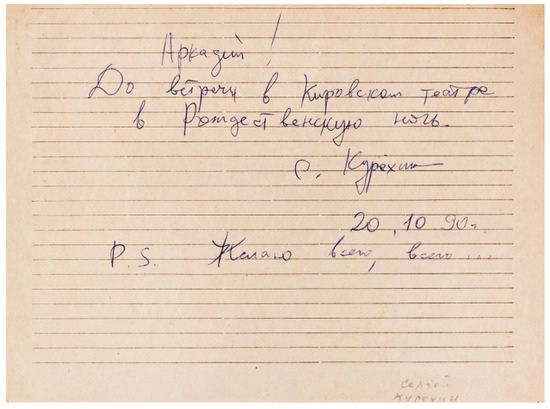 Аркадий!
До встречи в Кировском театре
в Рождественскую ночь.
С. Курёхин
20.10 90г.
P.S. Желаю всего, всего...
Сергей
Курехин